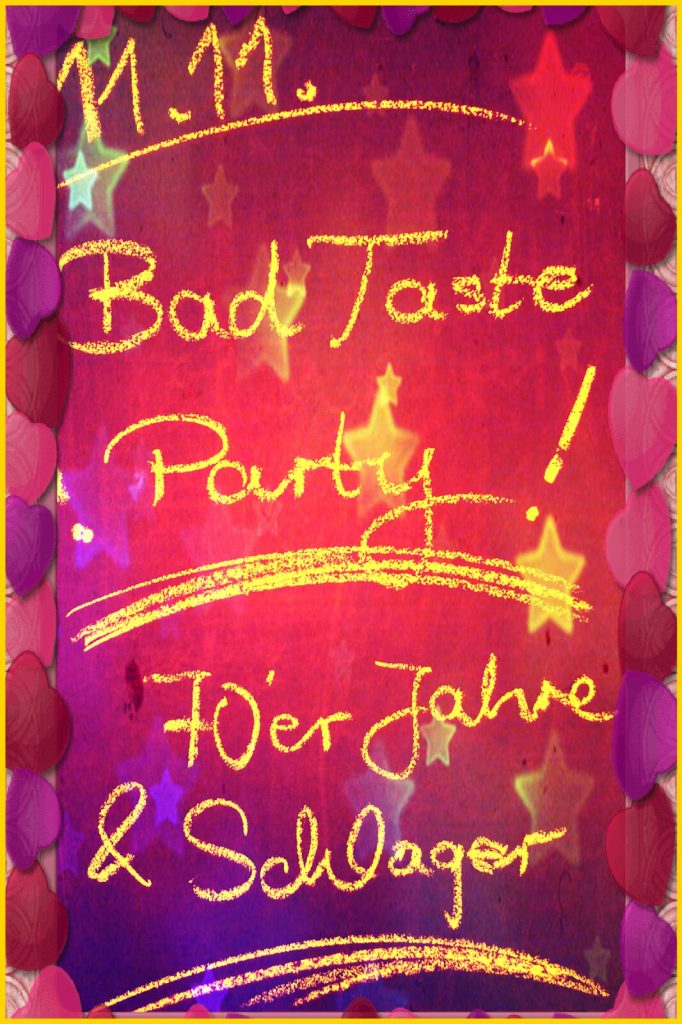 11.11.
Bad Taste
Party !
70'er Jahre
& Schlager